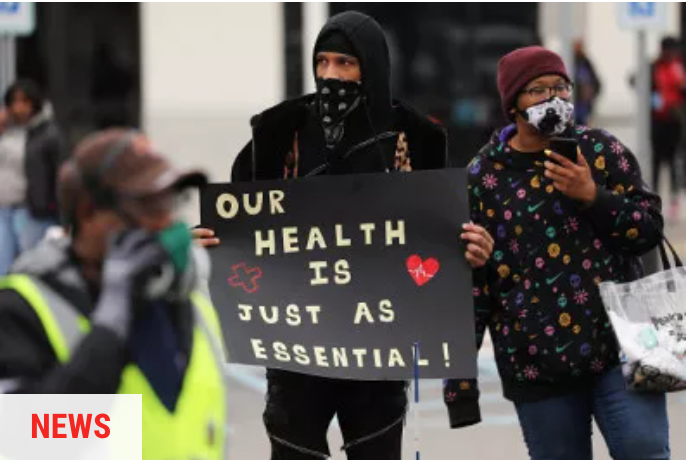 OUR
HEALTH
IS
JUST AS
ESSENTIAL!
NEWS